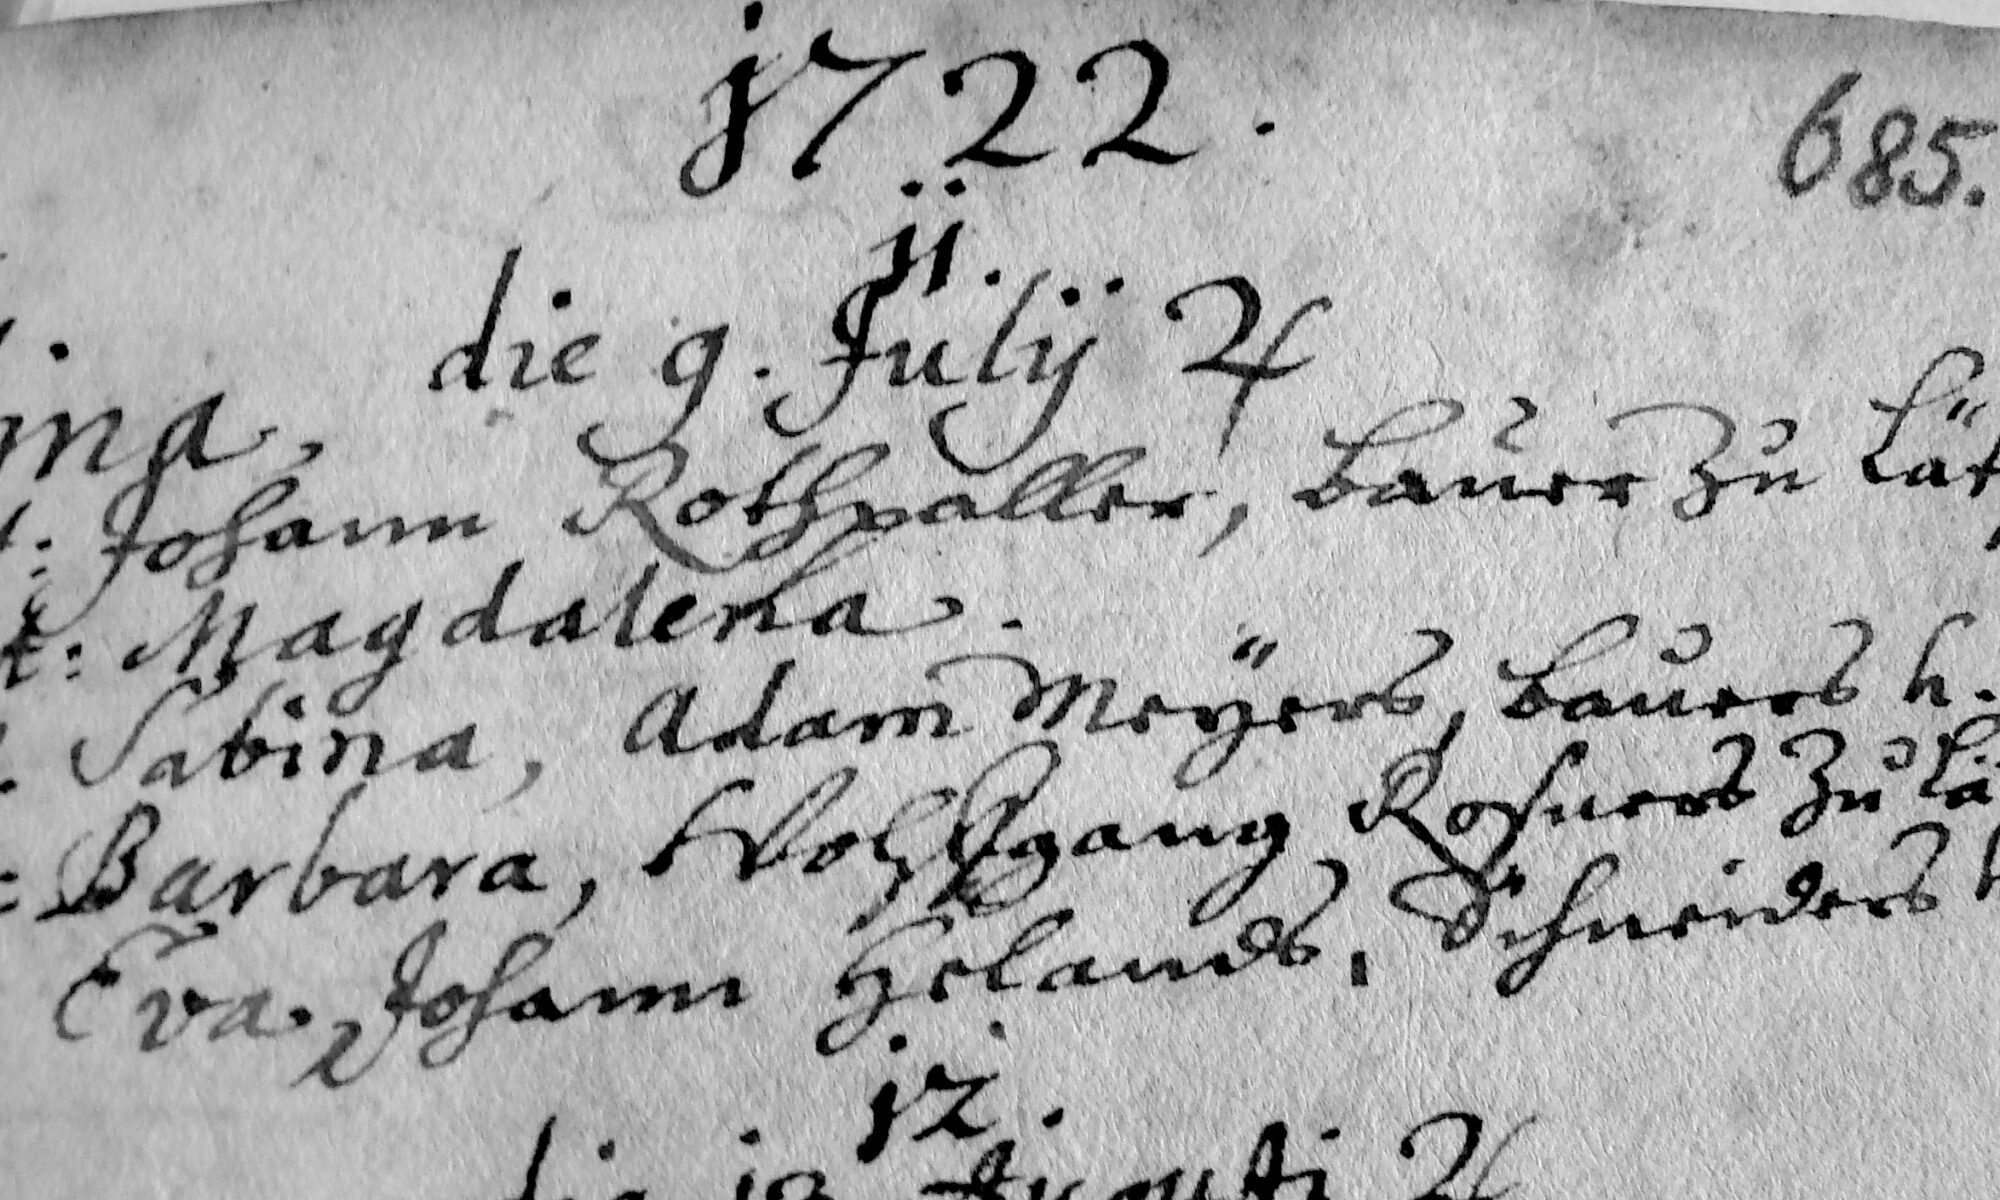 1722.
685.
11.
die 9. Julÿ ♃
ina,
: Johann Rothxaller, Bauer zu Läf
t: Magdalena.
. Sabina, Adam Meÿers, Bauers h.
: Barbara, Wolffgang Roßners zu Lä
Eva. Johann Helands, Schneiders h
12.
die 13 Augusti ♃